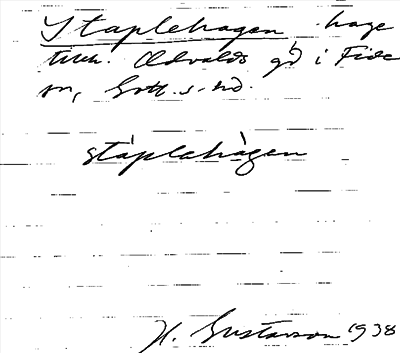 Staplehagen hage
tum. Ædvalds gd i Fide
sn, Gotl. s. hd.
stáplehàgen
H. Gustavson 1938